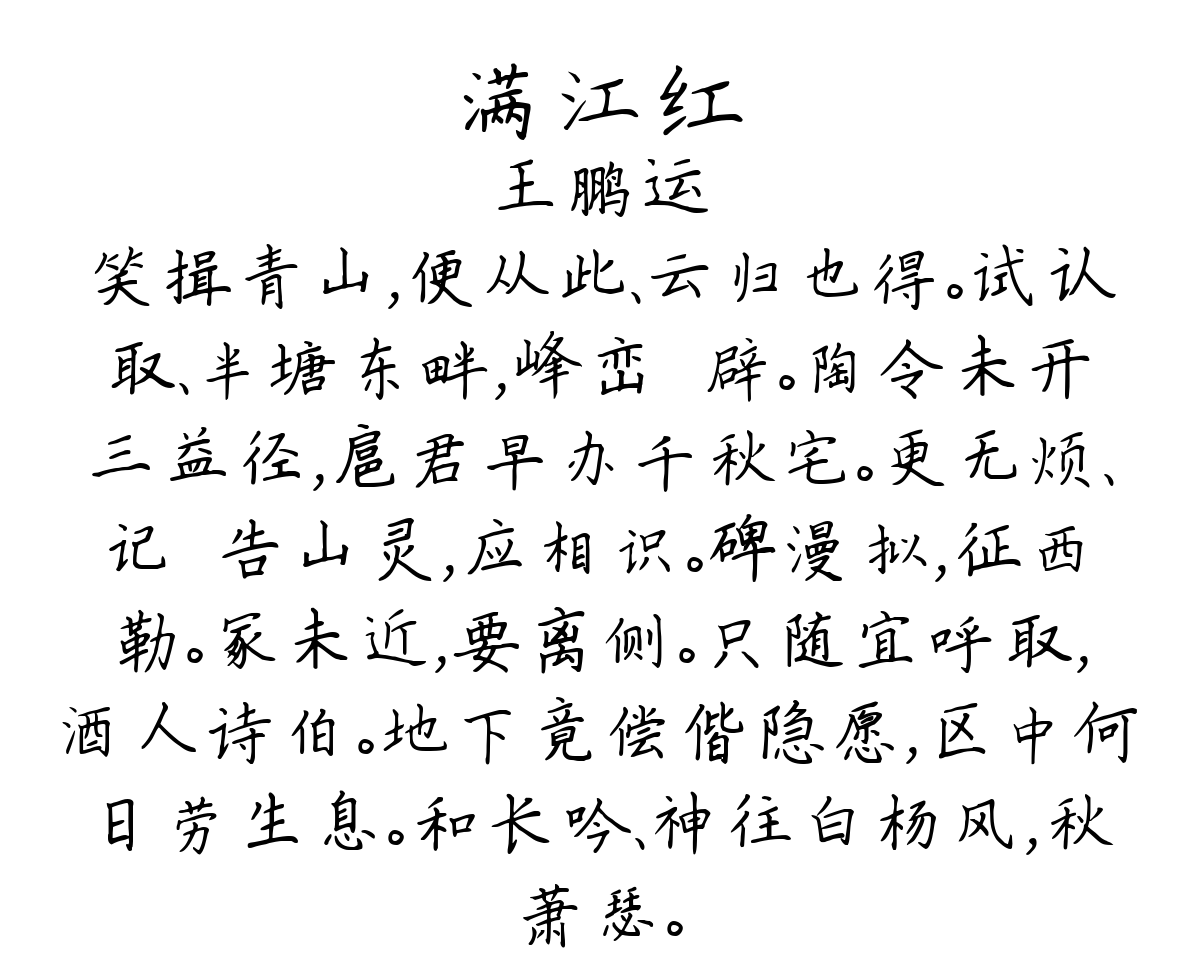 满江红
王鹏运
笑揖青山,便从此、云归也得。试认
取、半塘东畔,峰峦 辟。陶令未开
三益径,扈君早办千秋宅。更无烦、
记 告山灵,应相识。碑漫拟,征西
勒。冢未近,要离侧。只随宜呼取,
酒人诗伯。地下竟偿偕隐愿,区中何
日劳生息。和长吟、神往白杨风,秋
萧瑟。